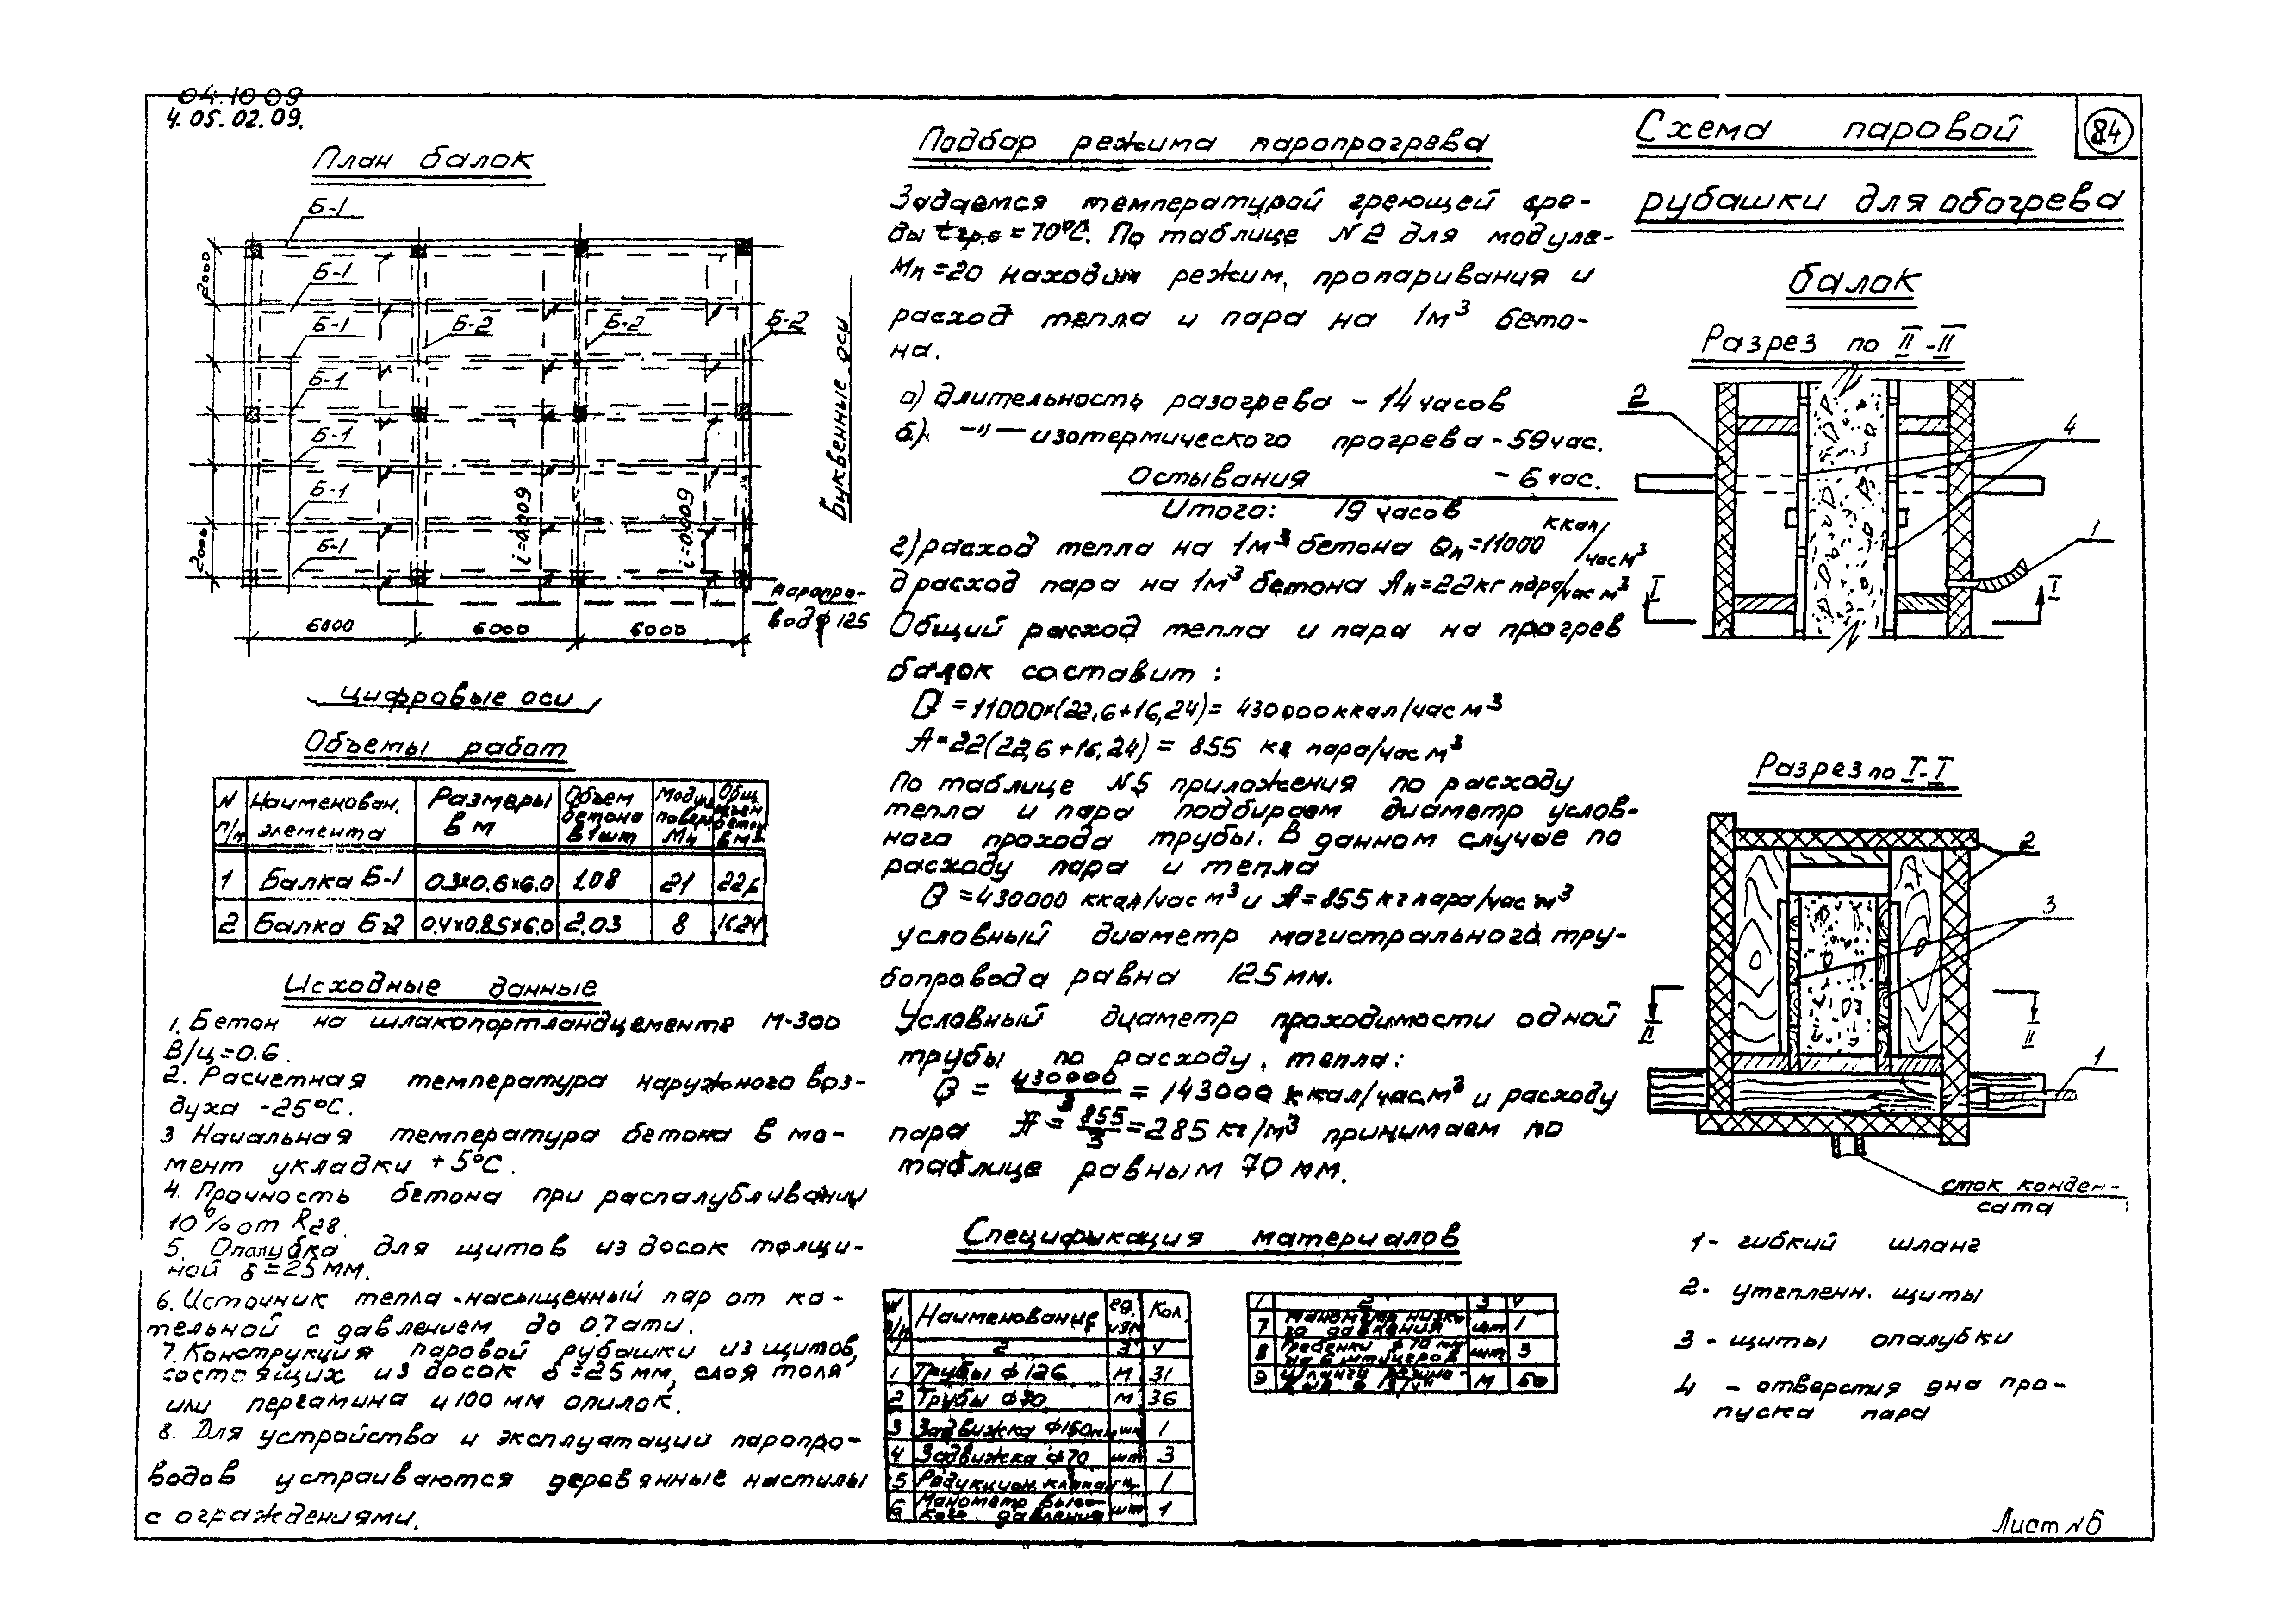 04.10 09
4. 05. 02. 09.
План балок
Б-1
Б-1
Б-1
Б-2
Б-2
Б-2
Б-1
Б-1
Б-1
Б-1
2000
2000
i=0.009
i=0.009
Буквенные оси
Паропро-
вод ф 125
6000
6000
6000
Цифровые оси
Объемы работ
N п/п
Наименован. элемента
Размеры в м
Объем бетона в 1 шт
Модул. поверх. Мп
Общ. объем бетон. в м³
1 Балка Б-1 0.3×0.6×6.0 1.08 21 22,6
2 Балка Б-2 0.4×0.85×6.0 2.03 8 16.24
Исходные данные
1. Бетон на шлакопортландцементе М-300
В/ц=0.6.
2. Расчетная температура наружного воз-
духа -25°С.
3 Начальная температура бетона в мо-
мент укладки +5°С.
4. Прочность бетона при распалубливании
10% от R28.
5. Опалубка для щитов из досок толщи-
ной δ=25мм.
6. Источник тепла -насыщенный пар от ко-
тельной с давлением до 0.7 ати.
7. Конструкция паровой рубашки из щитов,
состоящих из досок δ=25 мм, слоя толя
или пергамина и 100 мм опилок.
8. Для устройства и эксплуатации паропро-
водов устраиваются деревянные настилы
с ограждениями.
Подбор режима паропрогрева
Задаемся температурой греющей сре-
ды tгр.с = 70°С. По таблице N2 для модуля-
Мп=20 находим режим, пропаривания и
расход тепла и пара на 1м³ бето-
на.
а) длительность разогрева - 14 часов
б) —"— изотермического прогрева - 59 час.
Остывания - 6 час.
Итого: 19 часов
г) расход тепла на 1м³ бетона Qп=11000 ккал/час м³
д расход пара на 1м³ бетона Ап=22кг пара/час м³
Общий расход тепла и пара на прогрев
балок составит :
Q = 11000×(22,6+16,24)= 430000 ккал/час м³
А=22(22,6+16,24) = 855 кг пара/час м³
По таблице N5 приложения по расходу
тепла и пара подбираем диаметр услов-
ного прохода трубы. В данном случае по
расходу пара и тепла
Q =430000 ккал/час м³ и А=855 кг пара/час м³
условный диаметр магистрального тру-
бопровода равна 125 мм.
Условный диаметр проходимости одной
трубы по расходу, тепла:
Q = 430000/3 = 143000 ккал/час.м³ и расходу
пара А = 855/3 =285 кг/м³ принимаем по
таблице равным 70 мм.
Спецификация материалов
N п/п Наименование ед. изм Кол.
1 2 3 4
1 Трубы ф 126 м 31
2 Трубы ф70 м 36
3 Задвижка ф150мм шт 1
4 Задвижка ф70 шт 3
5 Редукцион. клапан шт 1
6 Манометр высо-
кого давления шт 1
1 2 3 4
7 Манометр низко-
го давления шт 1
8 Гребенки ф70 мм
на 6 штуцеров шт 3
9 Шланги резино-
м 50
Схема паровой
84
рубашки для обогрева
балок
Разрез по II-II
2
4
1
I
I
Разрез по I-I
2
3
II
II
1
сток конден-
сата
1- гибкий шланг
2- утепленн. щиты
3 - щиты опалубки
4 - отверстия дна про-
пуска пара
Лист N6